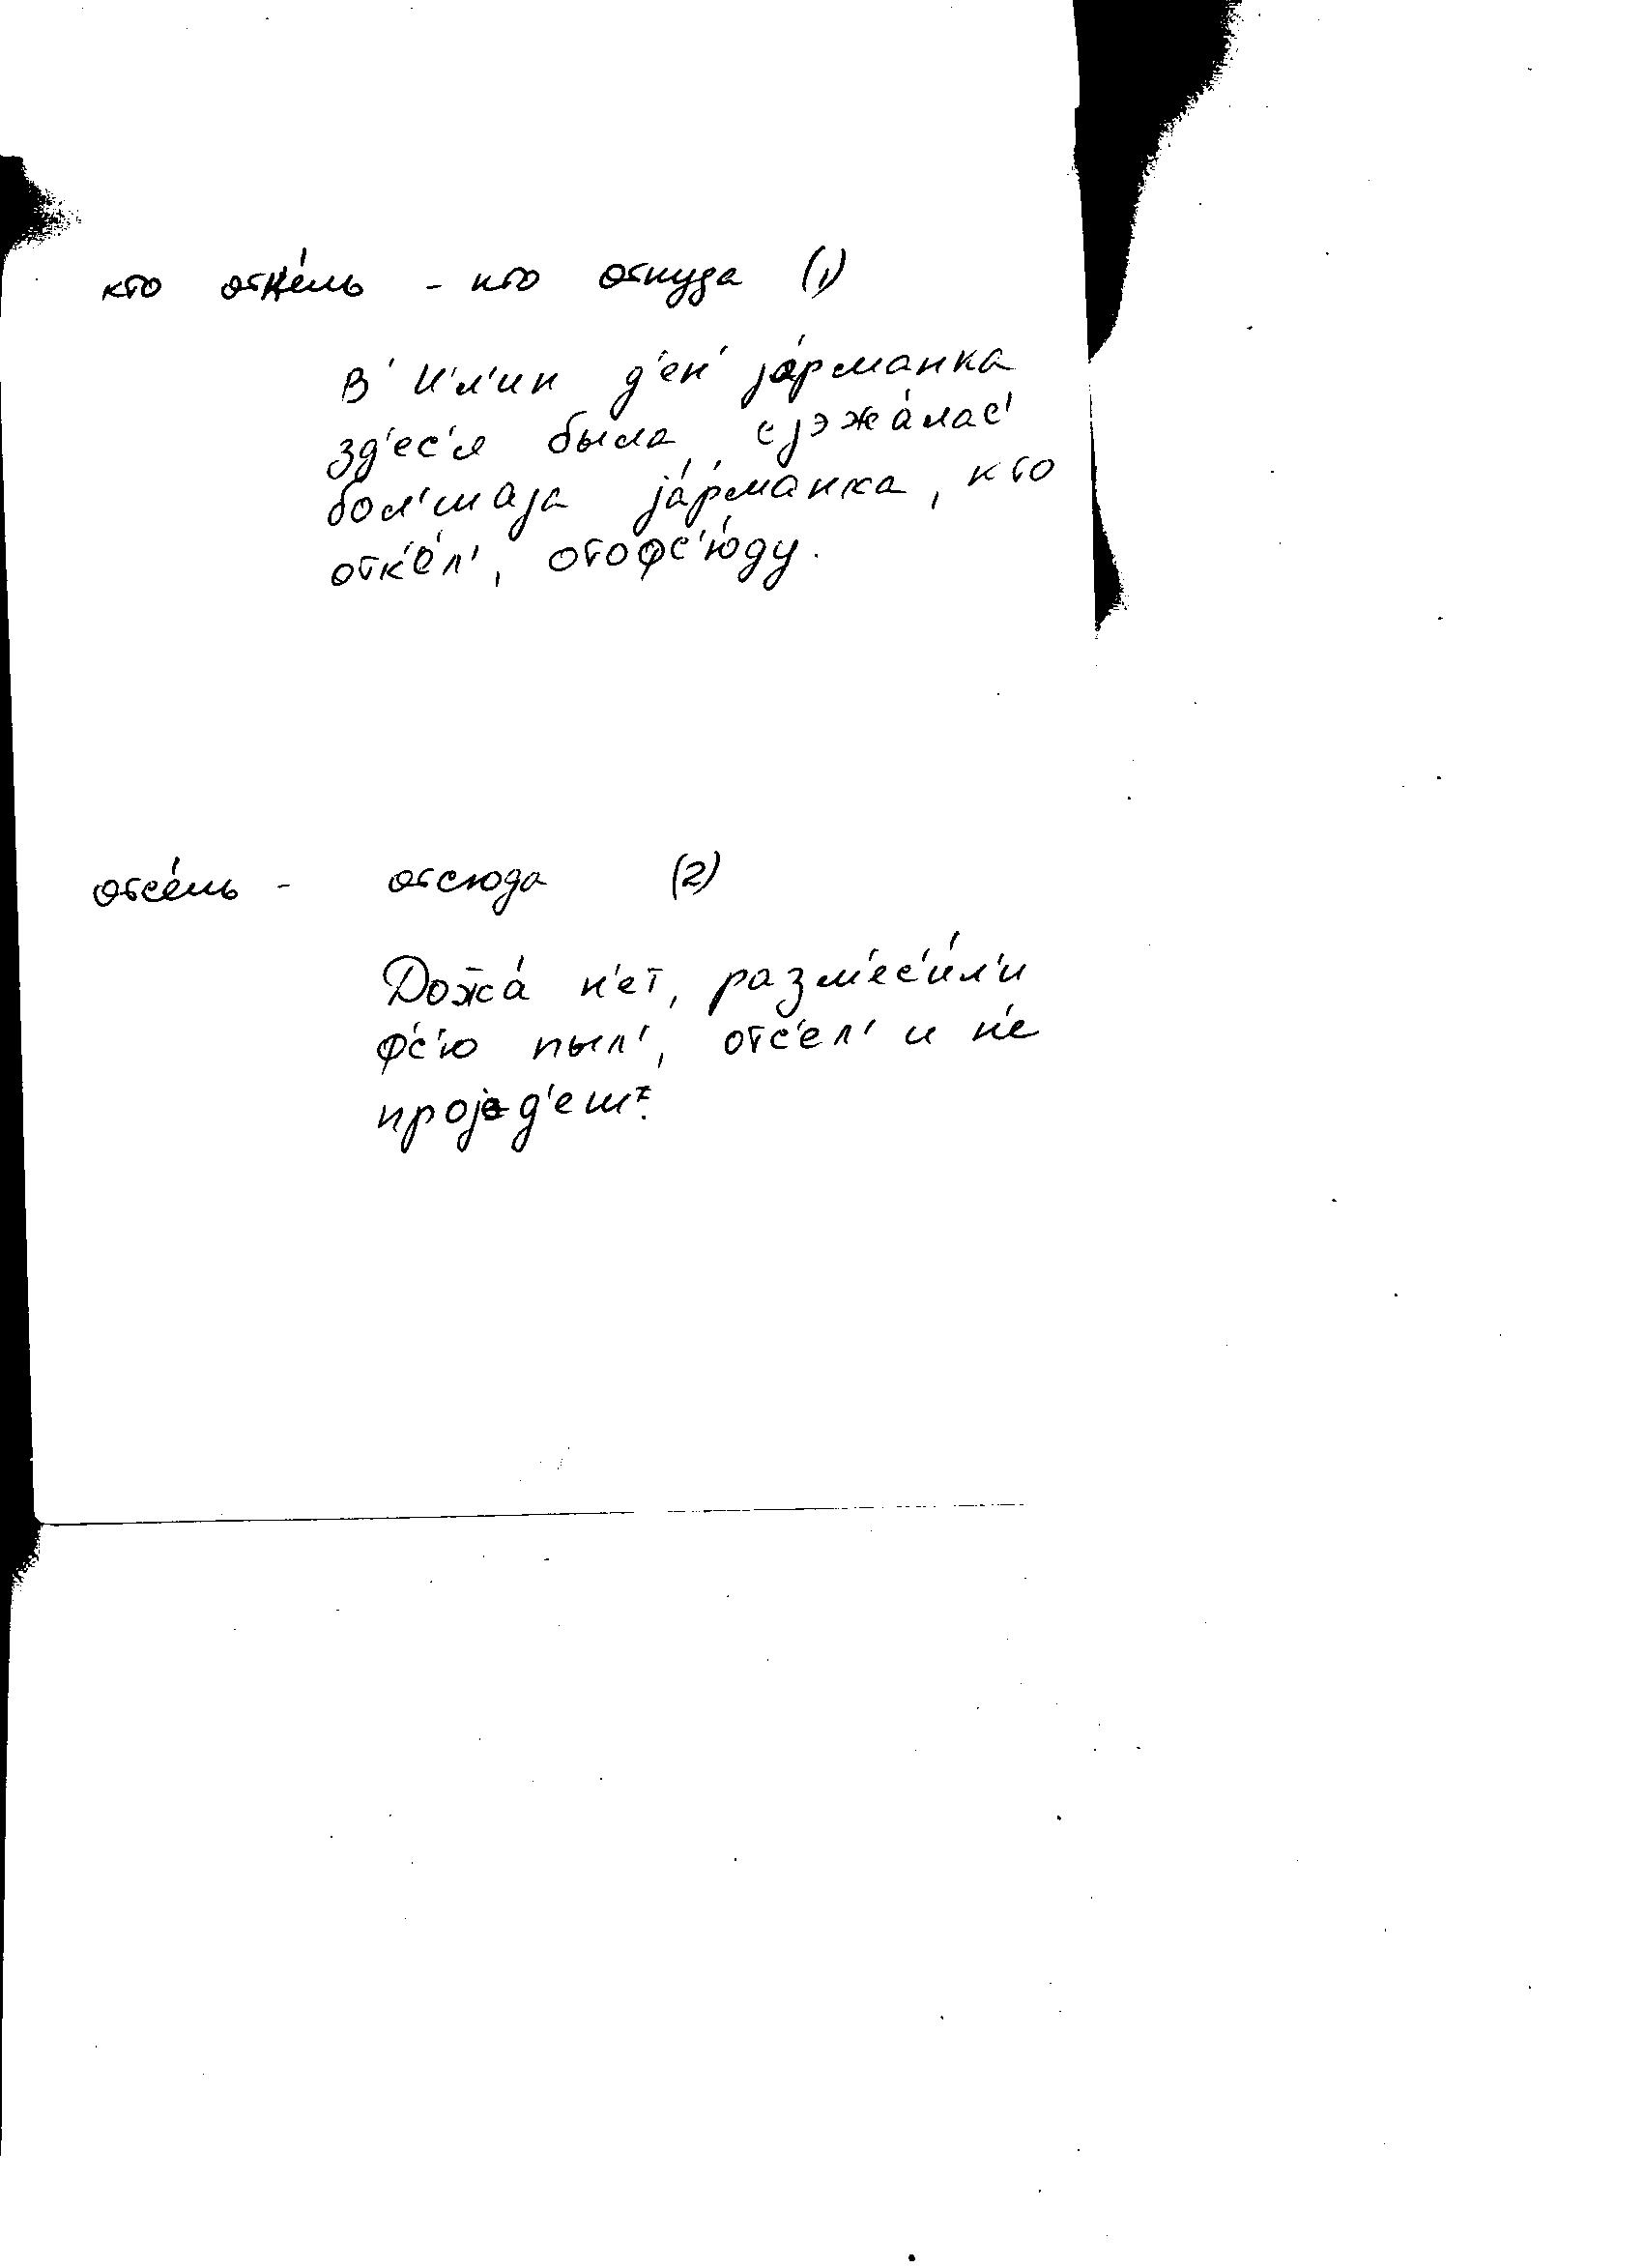 кто отке́ль - кто откуда (1)
В' И'л'ин д'ен' jа́рманка
зд'ес'я была, сjэжа́лас'
бол'шаjа jа́рманка, кто
отк'е́л', отофс'ю́ду.
отсе́ль - отсюда (2)
Дожжа́ н'ет, разм'ес'и́л'и
ф'с'ю пыл', отс'ел' и н'е
проjед'еш.